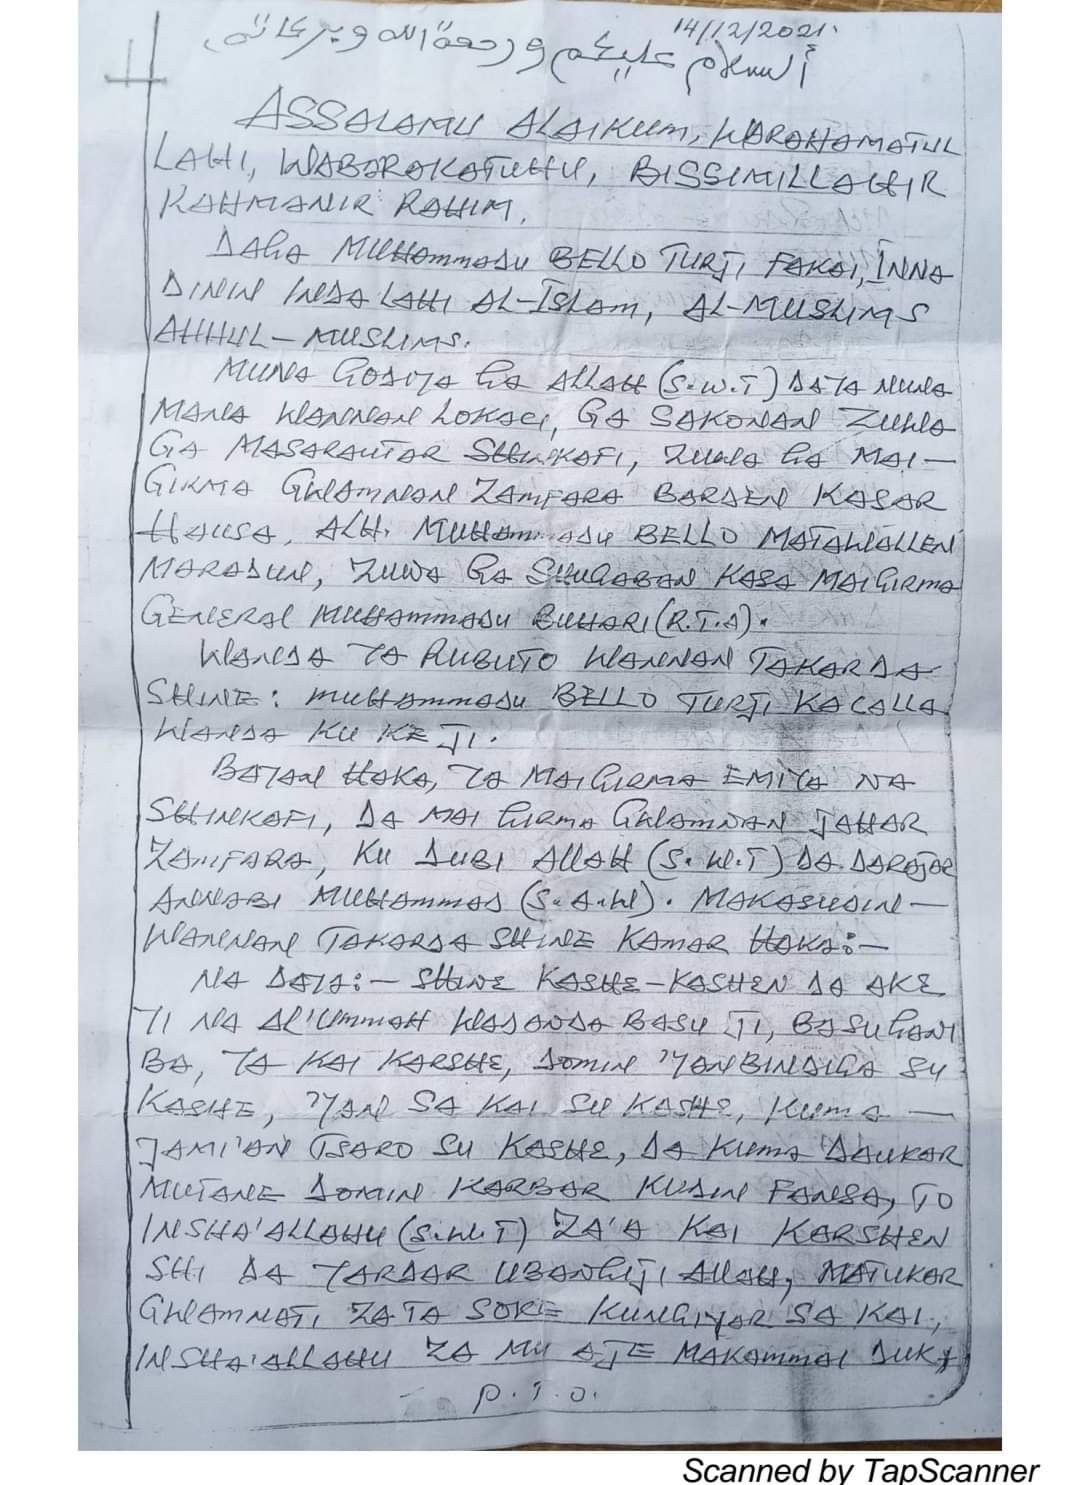 14/12/2021.
السلام عليكم ورحمة الله وبركاته
ASSALAMU ALAIKUM, WARAHAMATUL
LAHI, WABARAKATUHU, BISSIMILLAHIR
RAHMANIR RAHIM.
DAGA MUHAMMADU BELLO TURJI FAKAI, INNA
DININ INDA LAHI AL-ISLAM, AL-MUSLIMS
AHHUL-MUSLIMS.
MUNA GODIYA GA ALLAH (S.W.T) DAYA NUNA
MANA WANNAN LOKACI, GA SAKONAN ZUWA
GA MASARAUTAR SHINKAFI, ZUWA GA MAI-
GIRMA GWAMNAN ZAMFARA BARDEN KASAR
HAUSA, ALH. MUHAMMADU BELLO MATAWALLEN
MARADUN, ZUWA GA SHUGABAN KASA MAIGIRMA
GENERAL MUHAMMADU BUHARI (R.T.D).
WANDA YA RUBUTO WANNAN TAKARDA
SHINE: MUHAMMADU BELLO TURJI KACALLA
WANDA KU KE JI.
BAYAN HAKA, YA MAIGIRMA EMIYA NA
SHINKAFI, DA MAI GIRMA GWAMNAN JAHAR
ZAMFARA, KU DUBI ALLAH (S.W.T) DA DARAJAR
ANNABI MUHAMMAD (S.A.W). MAKASUDIN-
WANNAN TAKARDA SHINE KAMAR HAKA:-
NA DAYA:- SHINE KASHE-KASHEN DA AKE
YI NA AL'UMMAH WADANDA BASU JI, BASUGANI
BA, YA KAI KARSHE, DOMIN 'YANBINDIGA SU
KASHE, 'YAN SA KAI SU KASHE, KUMA-
JAMI'AN TSARO SU KASHE, DA KUMA DAUKAR
MUTANE DOMIN KARBAR KUDIN FANSA, TO
INSHA'ALLAHU (S.W.T) ZA'A KAI KARSHEN
SHI DA YARDAR UBANGIJI ALLAH, MATUKAR
GWAMNATI ZATA SOKE KUNGIYAR SA KAI,
INSHA'ALLAHU ZA MU AJE MAKAMMAI DUK,
- P.T.O.
Scanned by TapScanner